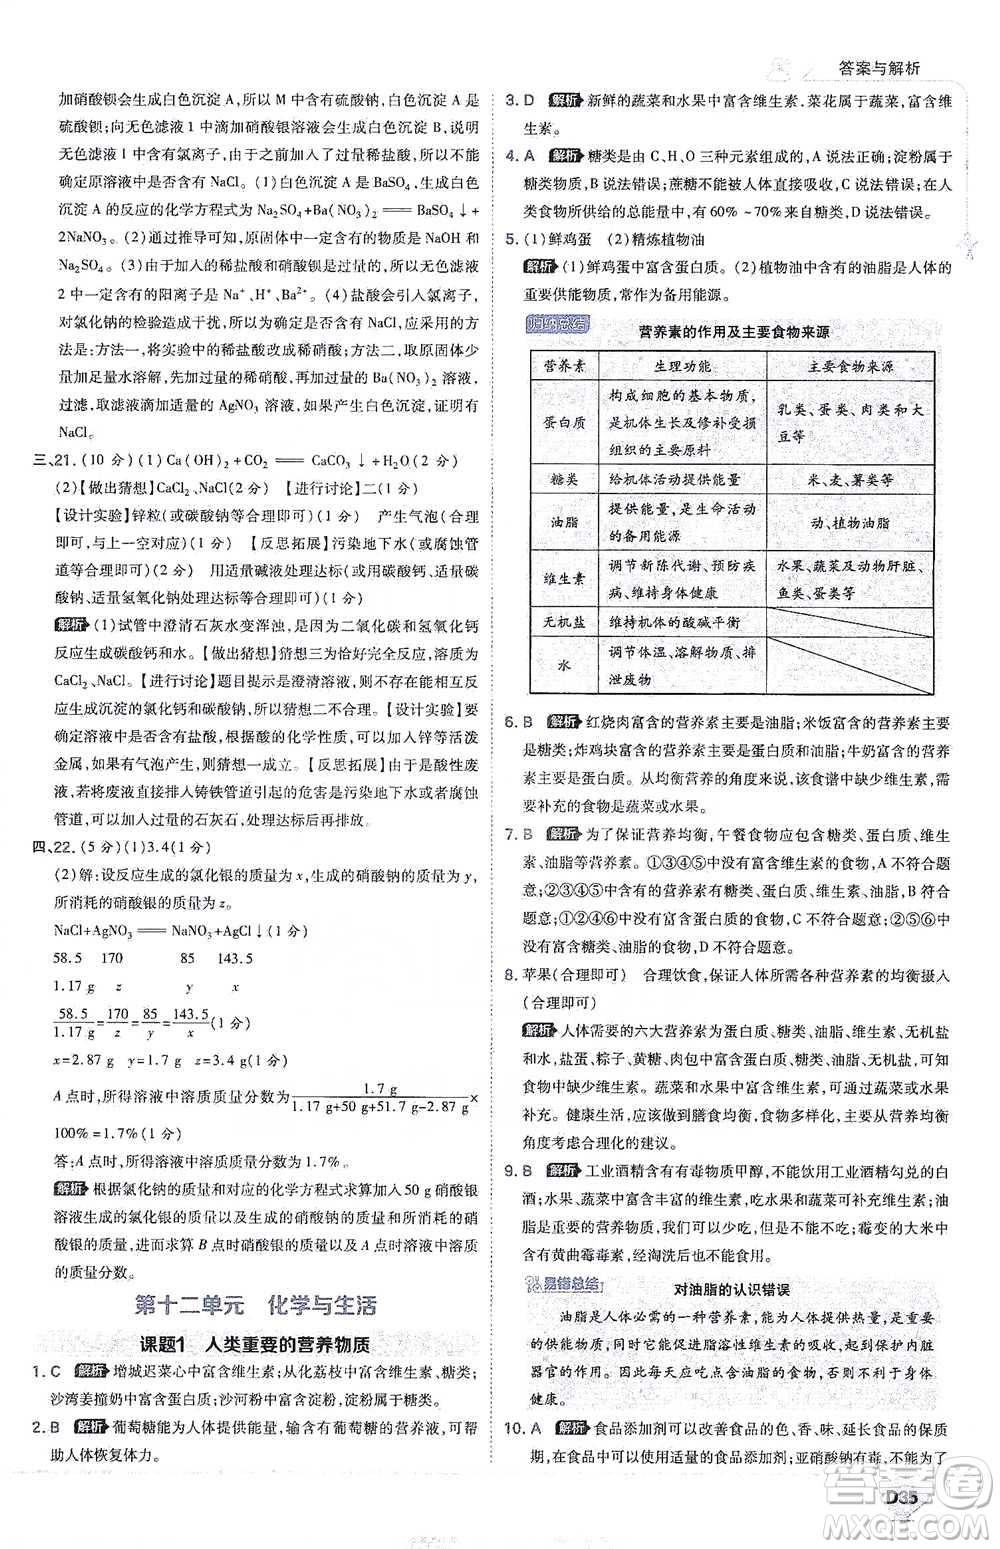 答案与解析
加硝酸钡会生成白色沉淀 A,所以 M 中含有硝酸钠,存在
硫酸钡;向无色滤液 1 中滴加硝酸银溶液会生成白色沉淀 B,说明
无色滤液 1 中含有氯离子,由于过量稀盐酸,所以不能
确定原固体中含有 NaCl。(1)白色沉淀 A 为 BaSO₄;生成
沉淀 A 的反应的化学方程式为 Na₂SO₄+Ba(NO₃)₂══BaSO₄↓+
2NaNO₃。(2)通过推导可知,原固体中的物质是 NaOH 和
Na₂SO₄。(3)由于加入的稀盐酸和硝酸钡是过量的,所以滤液
2 中一定含有的阳离子是 Na⁺、H⁺、Ba²⁺。(4)盐酸会引入氯离子,
对氯化钠的检验造成干扰,所以可能含有氯化钠,应采用的
方法是:将实验中的稀盐酸改成稀硝酸。具体做法:取固体少
量加足量水溶解,加入过量的稀硝酸,再加过量的 Ba(NO₃)₂ 溶液,
过滤,取滤液滴加适量的 AgNO₃ 溶液,如果产生白色沉淀,证明有
NaCl。
三、21. (10 分)(1)Ca(OH)₂+CO₂══CaCO₃↓+H₂O(2 分)
(2)【做出猜想】CaCl₂、NaCl(2 分)【进行讨论】二(1 分)
【设计实验】锌粒(或碳酸钠等合理即可) 产生气泡(合理
即可,与上一空对应)(2 分)【反思拓展】污染地下水(或腐蚀
管道等合理即可)(2 分) 用适量碱液处理达标(或用适量石灰
石、适量氢氧化钠处理达标等合理即可)(1 分)
解析 (1)试管中澄清石灰水变浑浊,是因为二氧化碳和氢氧化钙
反应生成碳酸钙和水。【做出猜想】猜想三:恰好完全反应,溶质为
CaCl₂、NaCl。【进行讨论】题目提示是澄清溶液,
反应生成沉淀的氯化钙和碳酸钠,所以猜想二不合理。【设计实验】要证明
溶液中存在有盐酸,根据盐酸的性质,可以加入锌等活泼
金属,如果有气泡产生,则猜想一成立。【反思拓展】根据题意可知,
若将废液直接排入铸铁管道引起的危害是污染地下水或腐蚀管
道,可以加入过量的石灰石,处理达标后再排放。
四、22. (5 分)(1)3.4(1 分)
(2)解:设反应生成的氯化银的质量为 x,生成的硝酸钠的质量为 y,
所消耗的硝酸银的质量为 z。
NaCl+AgNO₃══NaNO₃+AgCl↓(1 分)
58.5 170 85 143.5
1.17 g z y x
58.5/1.17 g=170/z=85/y=143.5/x(1 分)
x=2.87 g y=1.7 g z=3.4 g(1 分)
A 点时,所得溶液中溶质质量分数为 1.7 g/(1.17 g+50 g+51.7 g-2.87 g)×
100%=1.7%(1 分)
答:A 点时,所得溶液中溶质质量分数为 1.7%。
解析 根据氯化钠的质量和对应的化学方程式求算加入 50 g 硝酸银
溶液生成的氯化银的质量以及生成的硝酸钠的质量和所消耗的硝
酸银的质量,进而求算 B 点时硝酸银的质量以及 A 点时溶液中溶质
的质量分数。
第十二单元 化学与生活
课题1 人类重要的营养物质
1. C 解析 增城迟菜心中富含维生素;从化荔枝中富含维生素、糖类;
沙湾姜撞奶中富含蛋白质;沙河粉中富含淀粉,淀粉属于糖类。
2. B 解析 葡萄糖能为人体提供能量,输含有葡萄糖的营养液,可帮
助人体恢复体力。
3. D 解析 新鲜的蔬菜和水果中富含维生素,菜花属于蔬菜,富含维
生素。
4. A 解析 糖类是由 C、H、O 三种元素组成的,A 说法正确;淀粉属于
糖类物质,B 说法错误;蔗糖不能被人体直接吸收,C 说法错误;在人
类食物所供给的总能量中,有 60%~70%来自糖类,D 说法错误。
5. (1)鲜鸡蛋 (2)精炼植物油
解析 (1)鲜鸡蛋中富含蛋白质。(2)植物油中含有的油脂是人体的
重要供能物质,常作为备用能源。
归纳总结
营养素的作用及主要食物来源
营养素 生理功能 主要食物来源
蛋白质 构成细胞的基本物质,是机体生长及修补受损组织的主要原料 乳类、蛋类、肉类和大豆等
糖类 给机体活动提供能量 米、麦、薯类等
油脂 提供能量,是生命活动的备用能源 动、植物油脂
维生素 调节新陈代谢、预防疾病、维持身体健康 水果、蔬菜及动物肝脏、鱼类、蛋类等
无机盐 维持机体的酸碱平衡
水 调节体温、溶解物质、排泄废物
6. B 解析 红烧肉富含的营养素主要是油脂;米饭富含的营养素主要
是糖类;炸鸡块富含的营养素主要是蛋白质和油脂;牛奶富含的营养
素主要是蛋白质。从均衡营养的角度来说,该食谱中缺少维生素,需
要补充的食物是蔬菜或水果。
7. B 解析 为了保证营养均衡,午餐食物应包含糖类、蛋白质、维生
素、油脂等营养素。①③④⑤中没有富含维生素的食物,A 不符合题
意;②③④⑤中的食物,含有的营养素有糖类、蛋白质、维生素、油脂,B 符合
题意;①②④⑥中没有富含蛋白质的食物,C 不符合题意;②④⑤⑥中
没有富含糖类、油脂的食物,D 不符合题意。
8. 苹果(合理即可) 合理饮食,保证人体所需各种营养素的均衡摄入
(合理即可)
解析 人体需要的六大营养素为蛋白质、糖类、油脂、维生素、无机盐
和水,盐蛋、粽子、黄糖、肉包中富含蛋白质、糖类、油脂、无机盐,可知
食物中缺少维生素。蔬菜和水果中富含维生素,可通过蔬菜或水果
补充。健康生活,应该做到膳食均衡,食物多样化,主要从营养均衡
角度考虑合理化的建议。
9. B 解析 工业酒精中含有有毒物质甲醇,不能饮用工业酒精勾兑的白
酒;水果、蔬菜中含丰富的维生素,吃水果和蔬菜可补充维生素;油
脂是重要的营养物质,我们可以少吃,但不能不吃;霉变的大米中
含有黄曲霉毒素,经淘洗后也不能食用。
易错总结
对油脂的认识错误
油脂是人体必需的一种营养素,能提供热量,是重要的
供能物质。油脂能促进脂溶性维生素的吸收,起保护内脏
器官的作用。因此每天应吃含油脂的食物,以保证身体
健康。
10. A 解析 食品添加剂可以改善食品的色、香、味、延长食品的保质
期,在食品中可以使用适量的食品添加剂;亚硝酸钠有毒,不能为了
D35
答案圈
MXQE.COM